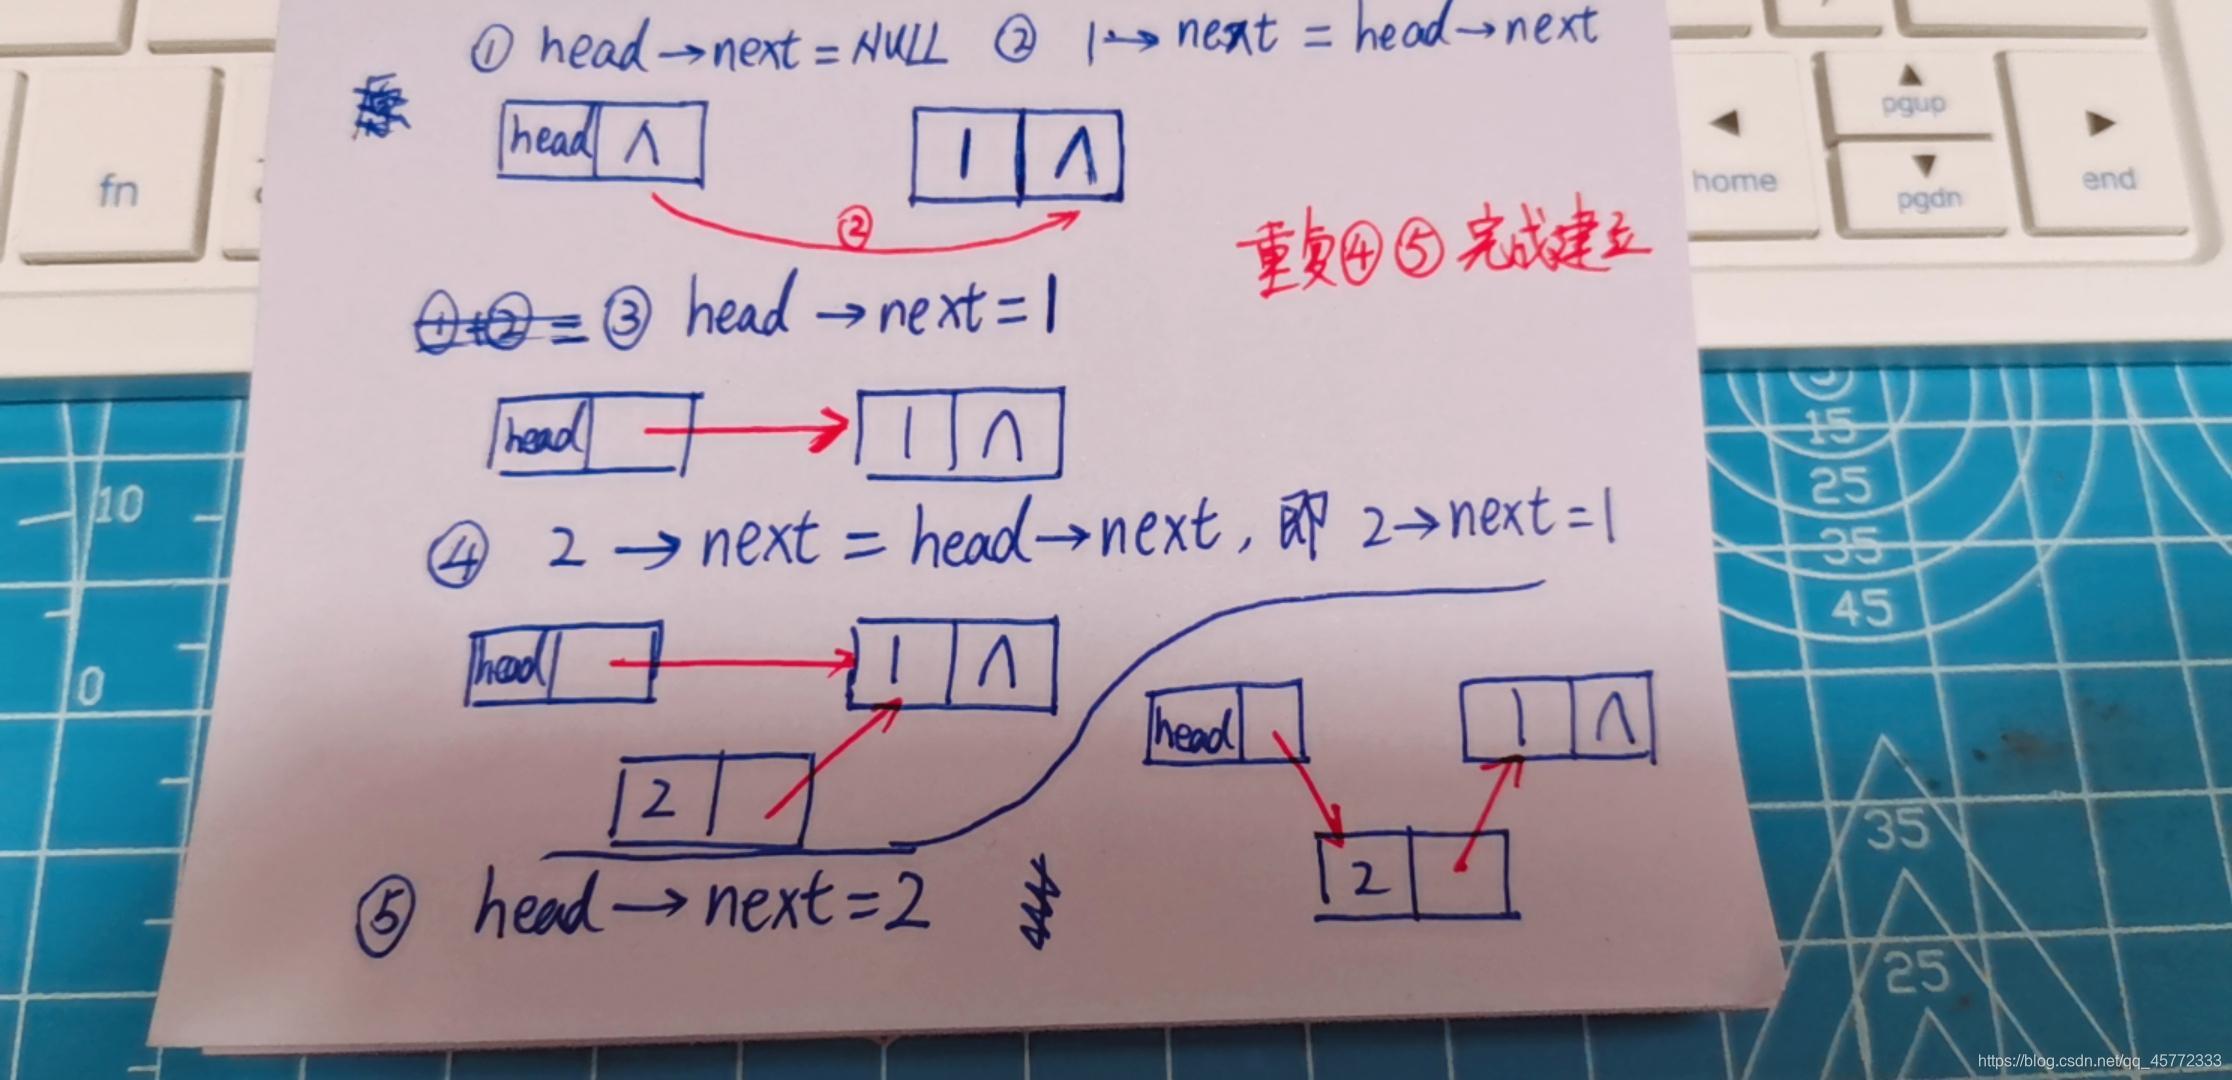 ① head→next=NULL ② 1→next = head→next
head ∧ 1 ∧
②
重复④⑤完成建立
①+②= ③ head→next=1
head 1 ∧
④ 2→next = head→next, 即 2→next=1
head 1 ∧
2
head 1 ∧
2
⑤ head→next=2
fn
home
pgup
pgdn
end
10
0
15
25
35
45
35
25
https://blog.csdn.net/qq_45772333